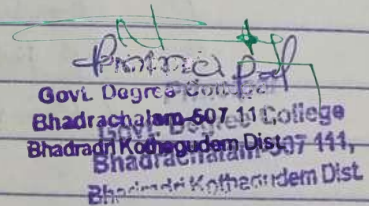 Principal
Govt. Degree
Bhadrachalam-507 11
Bhadradri Kothagudem Dist.
Govt. Degree College
Bhadrachalam-507 111,
Bhadradri Kothagudem Dist.